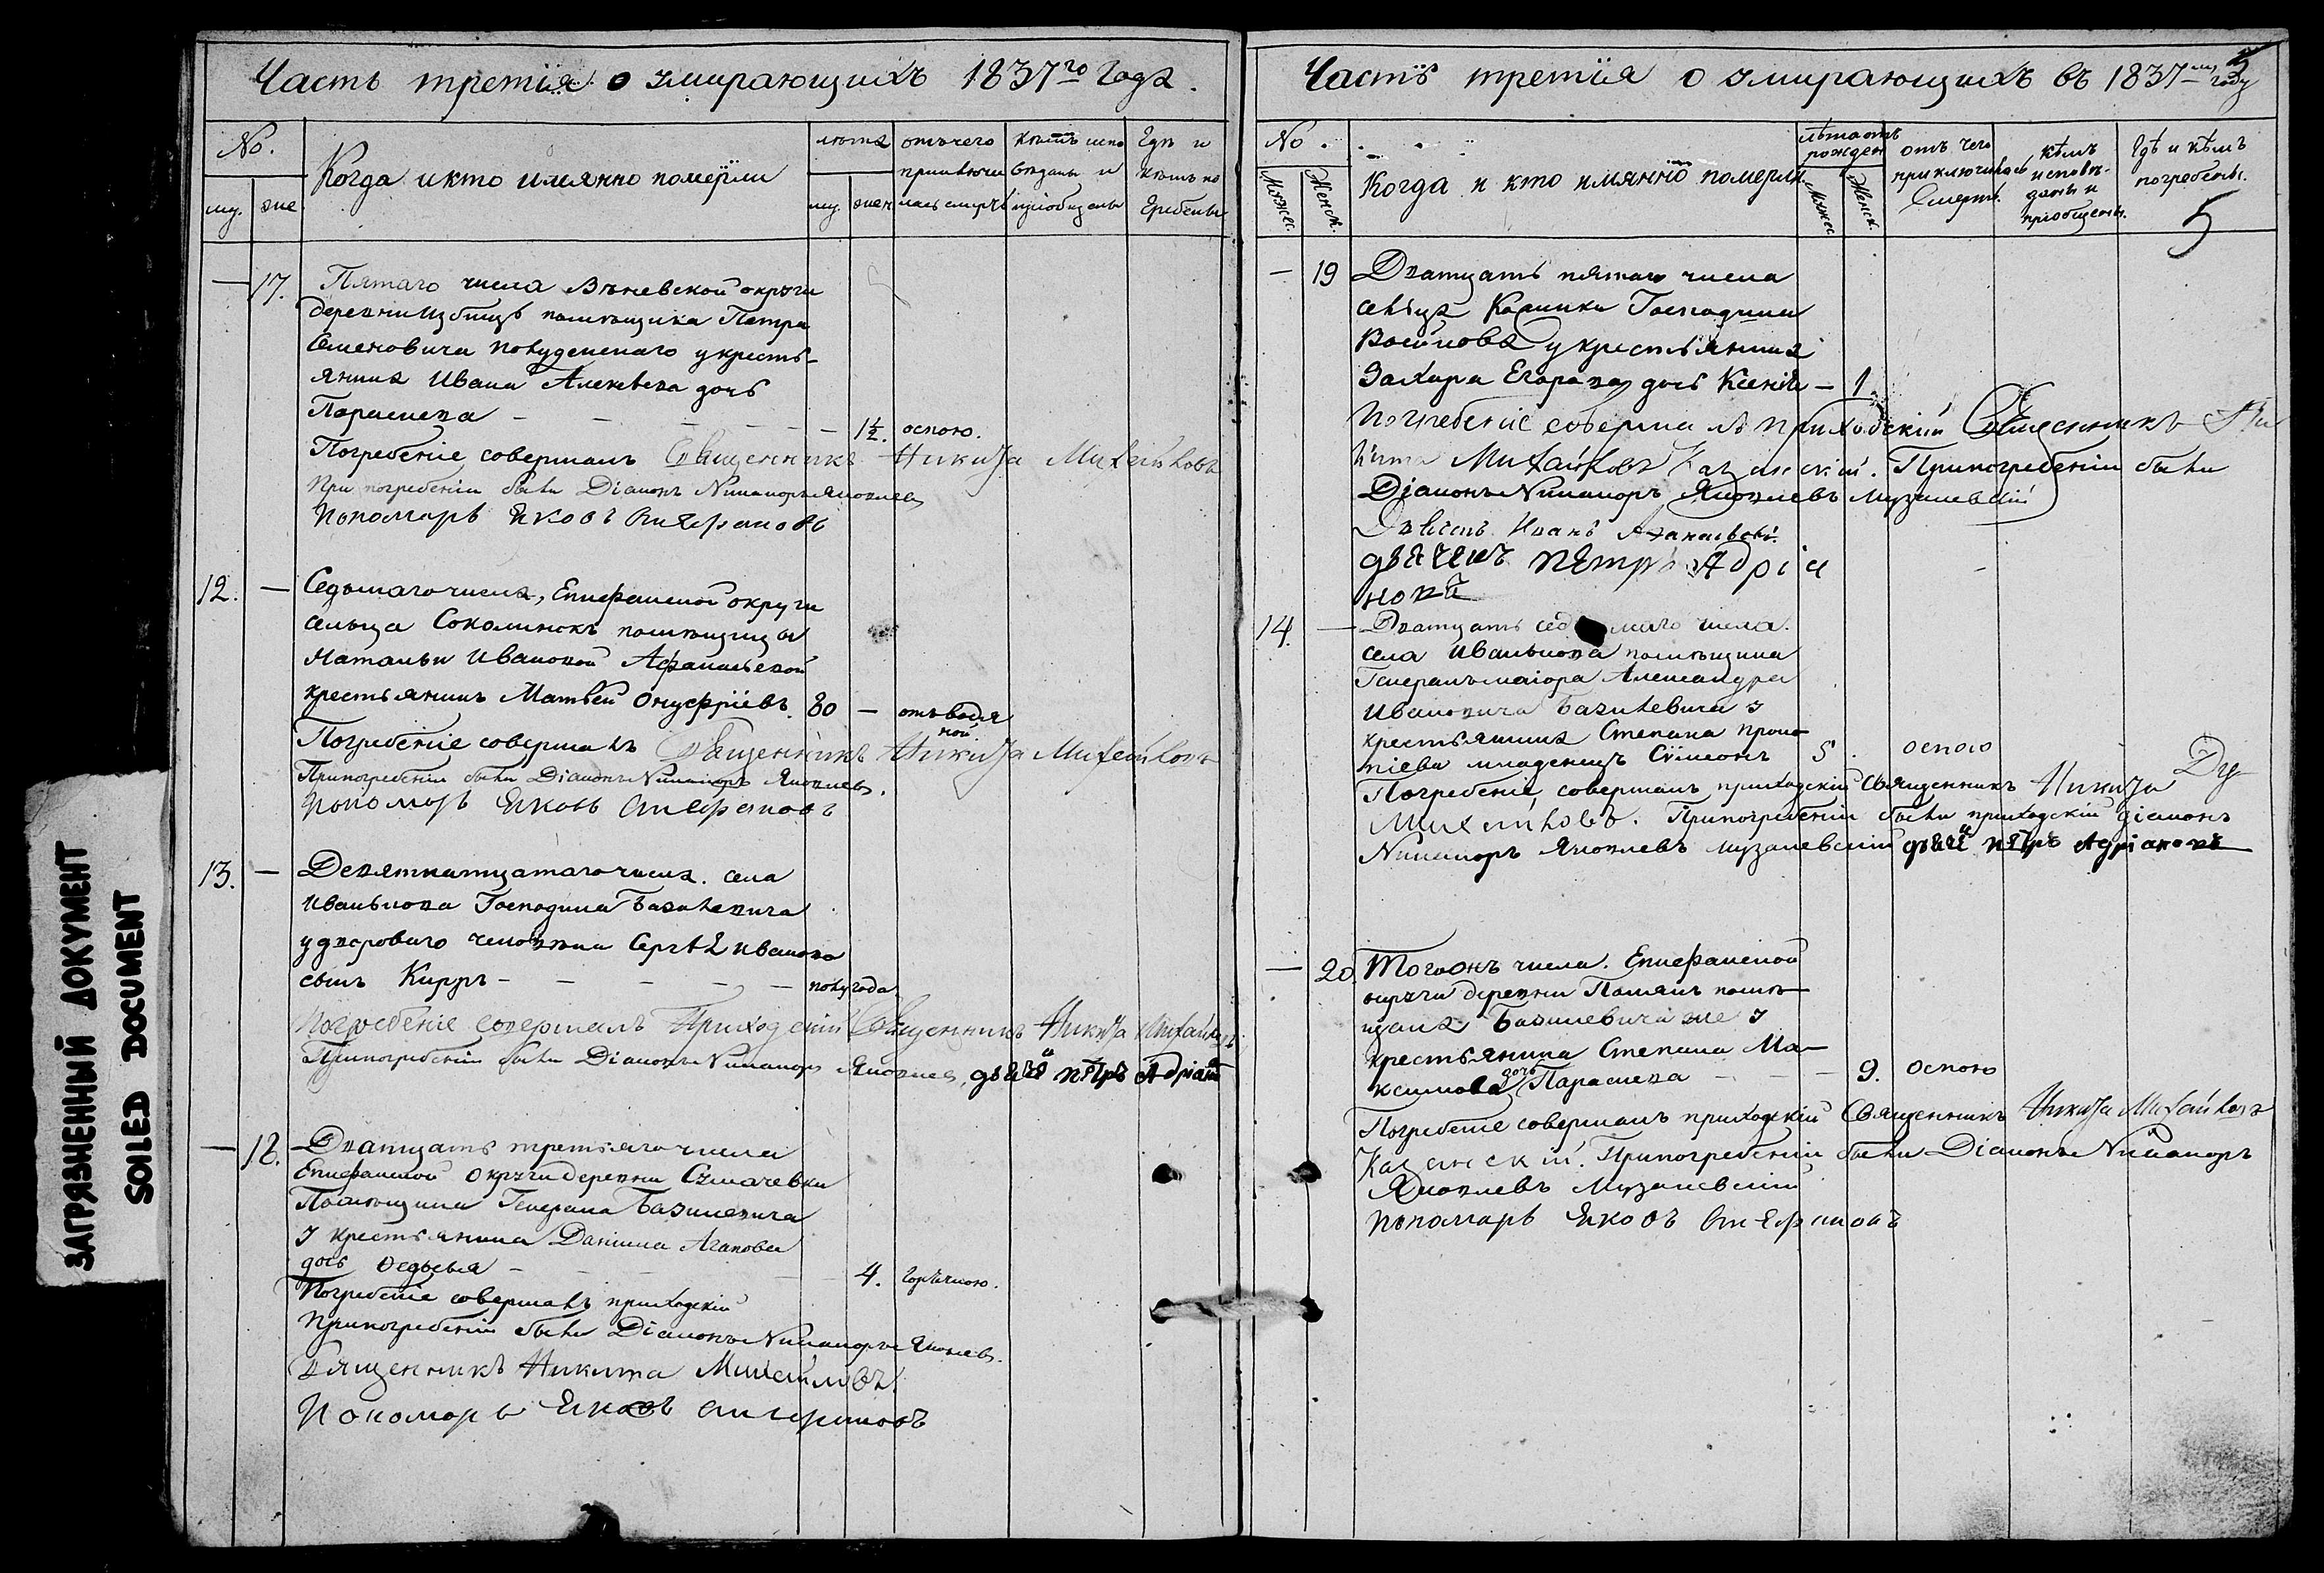 ЗАГРЯЗНЕННЫЙ ДОКУМЕНТ
SOILED DOCUMENT
Часть третія о умирающихъ 1837го года.
No.
му. же
Когда и кто имянно помёрли
лѣта
му. жен
отъ чего приключилась смерть
кѣмъ исповѣданы и пріобщены
Гдѣ и кѣмъ погребены
— 17. Пятаго числа Вѣневской округи
деревни помѣщика Петра
Семеновича у кресть-
янина Ивана Алексѣева дочь
Параскева — 1½. оспою.
Погребеніе совершалъ Священникъ Никита Михайловъ
При погребеніи были Діаконъ Никаноръ Яковлевъ
Пономарь Яковъ Стефановъ
12. — Седьмаго числа, Епифанской округи
сельца помѣщицы
Натальи Ивановой Афанасьевой
крестьянинъ Матвей Онуфріевъ 80 — отъ водя
ной.
Погребеніе совершалъ Священникъ Никита Михайловъ
При погребеніи были Діаконъ Никаноръ Яковлевъ.
Пономарь Яковъ Стефановъ
13. — Девятнатцатаго числа. села
Иванькова Господина Базилевича
у двороваго человѣка Сергѣя Иванова
сынъ Кирръ — полугода
Погребеніе совершалъ Приходскій Священникъ Никита Михайловъ
При погребеніи были Діаконъ Никаноръ Яковлев, дьячёкъ пётръ Адріановъ
— 18. Дватцать третьяго числа
Епифанской округи деревни
Помѣщика Генерала Базилевича
у крестьянина Даніила Агапова
дочь Федосья — 4. горячкою.
Погребеніе совершалъ приходскій
При погребеніи были Діаконъ Никаноръ Яковлев.
Священникъ Никита Михайловъ
Пономарь Яковъ Стефановъ
Часть третія о умирающихъ въ 1837мъ году
No.
Мужес. Женск.
Когда и кто имянно померли.
лѣта отъ рожден
Мужес. Женск.
отъ чего приключилась Смерть.
кѣмъ исповѣданы и пріобщены.
Гдѣ и кѣмъ погребены.
5
— 19 Дватцать пятаго числа
сельца Господина
Воейкова у крестьянина
Захара Егорова дочь Ксенія — 1.
Погребеніе совершалъ приходскій Священникъ Ни
кита Михайловъ Казанскій. При погребеніи были
Діаконъ Никаноръ Яковлевъ Музалевскій
Иванъ
дьячекъ пётръ Адріа
новъ
14. — Дватцать седьмаго числа.
села Иванькова помѣщика
Генералъ маіора Александра
Ивановича Базилевича у
крестьянина Степана Проко
піева младенецъ Сѵмеонъ 5. оспою
Погребеніе совершалъ приходскій Священникъ Никита
Михайловъ. При погребеніи были приходскій діаконъ
Никаноръ Яковлевъ Музалевскій дьячёкъ пётръ Адріановъ
— 20. Того жъ числа. Епифанской
округи деревни помѣ-
щика Базилевича же у
крестьянина Степана Ма-
ксимова дочь Параскева — 9. оспою
Погребеніе совершалъ приходскій Священникъ Никита Михайловъ
Казанскій. При погребеніи были Діаконъ Никаноръ
Яковлевъ Музалевскій
Пономарь Яковъ Стефановъ